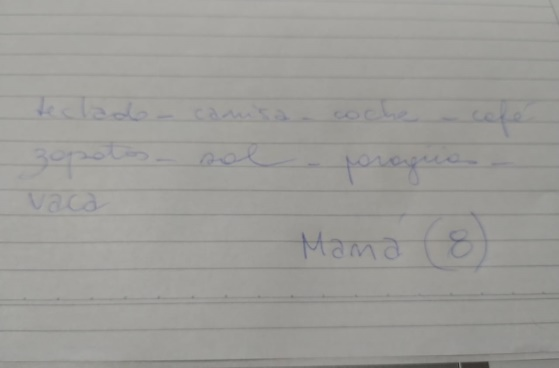 teclado - camisa - coche - café
zapatos - sol - paragua -
vaca
Mamá (8)